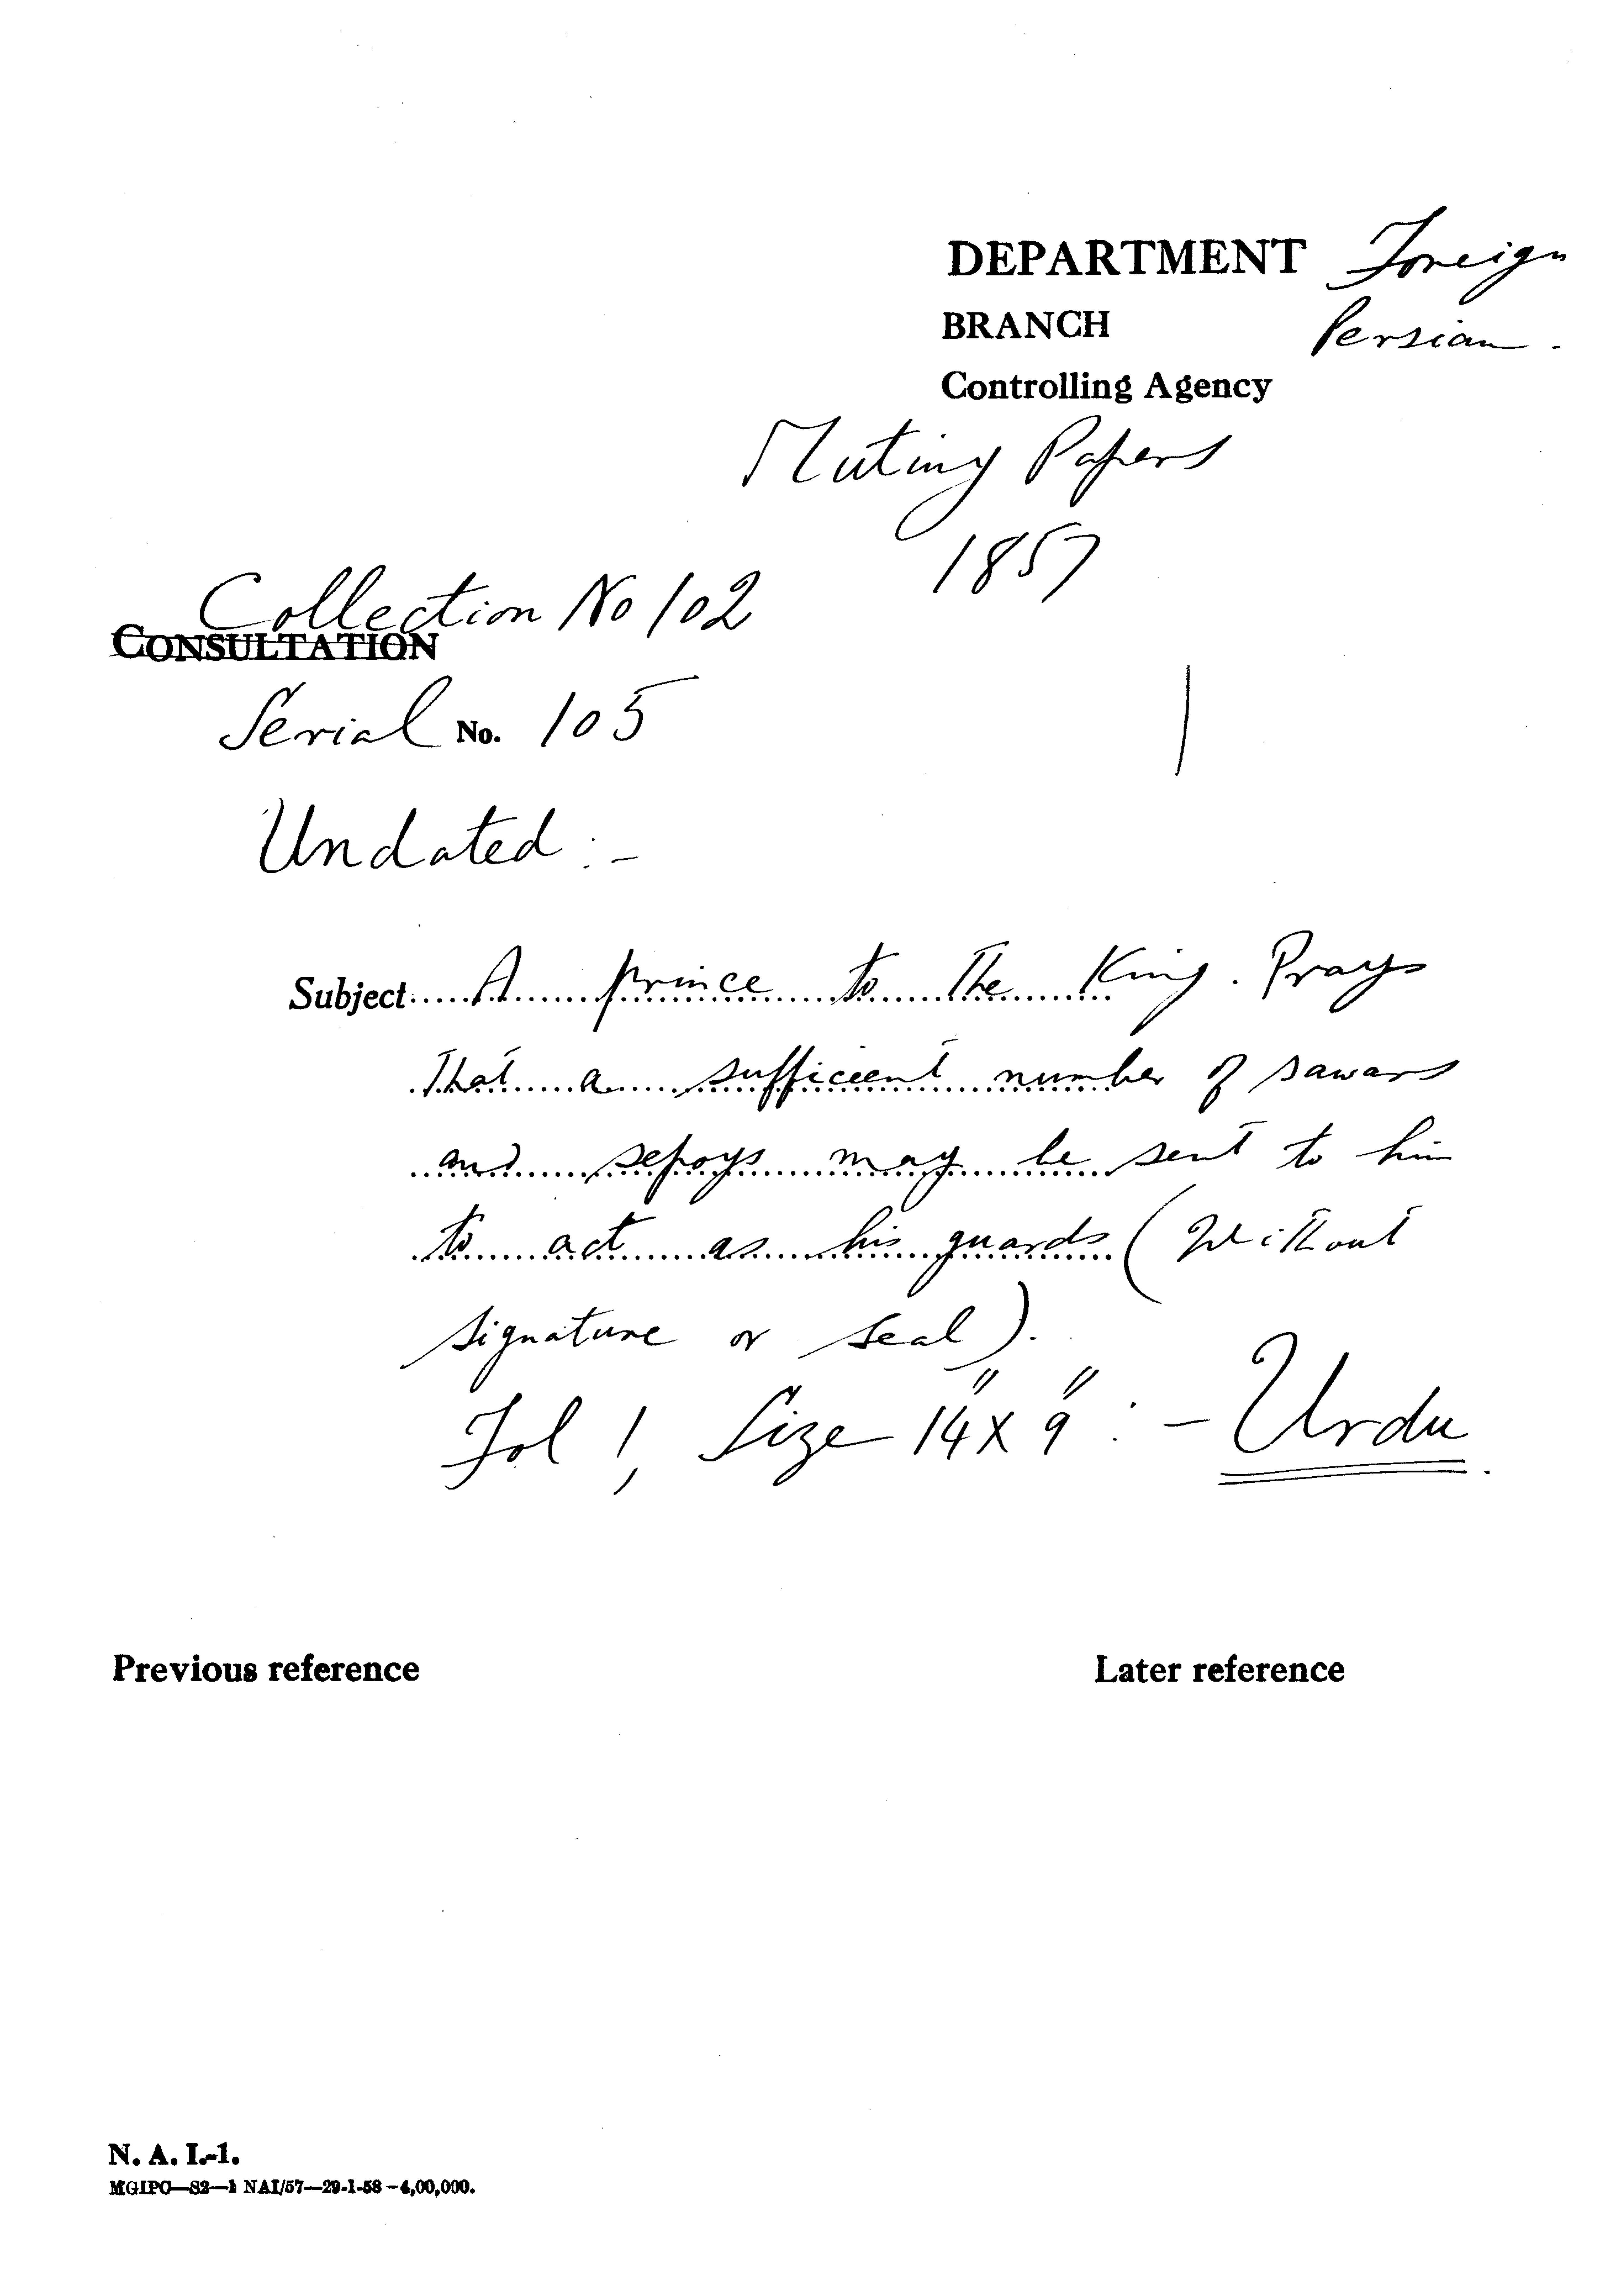 DEPARTMENT Foreign
BRANCH Persian.
Controlling Agency
Mutiny Papers
1857
Collection No 102
CONSULTATION
Serial No. 105
Undated :-
Subject..... A prince to the King. Prays
that a sufficient number of sawars
and sepoys may be sent to him
to act as his guards (Without
signature or seal).
Fol 1, Size 14" x 9" :- Urdu.
Previous reference Later reference
N. A. I.-1.
MGIPC—S2—1 NAI/57—29-1-58—4,00,000.